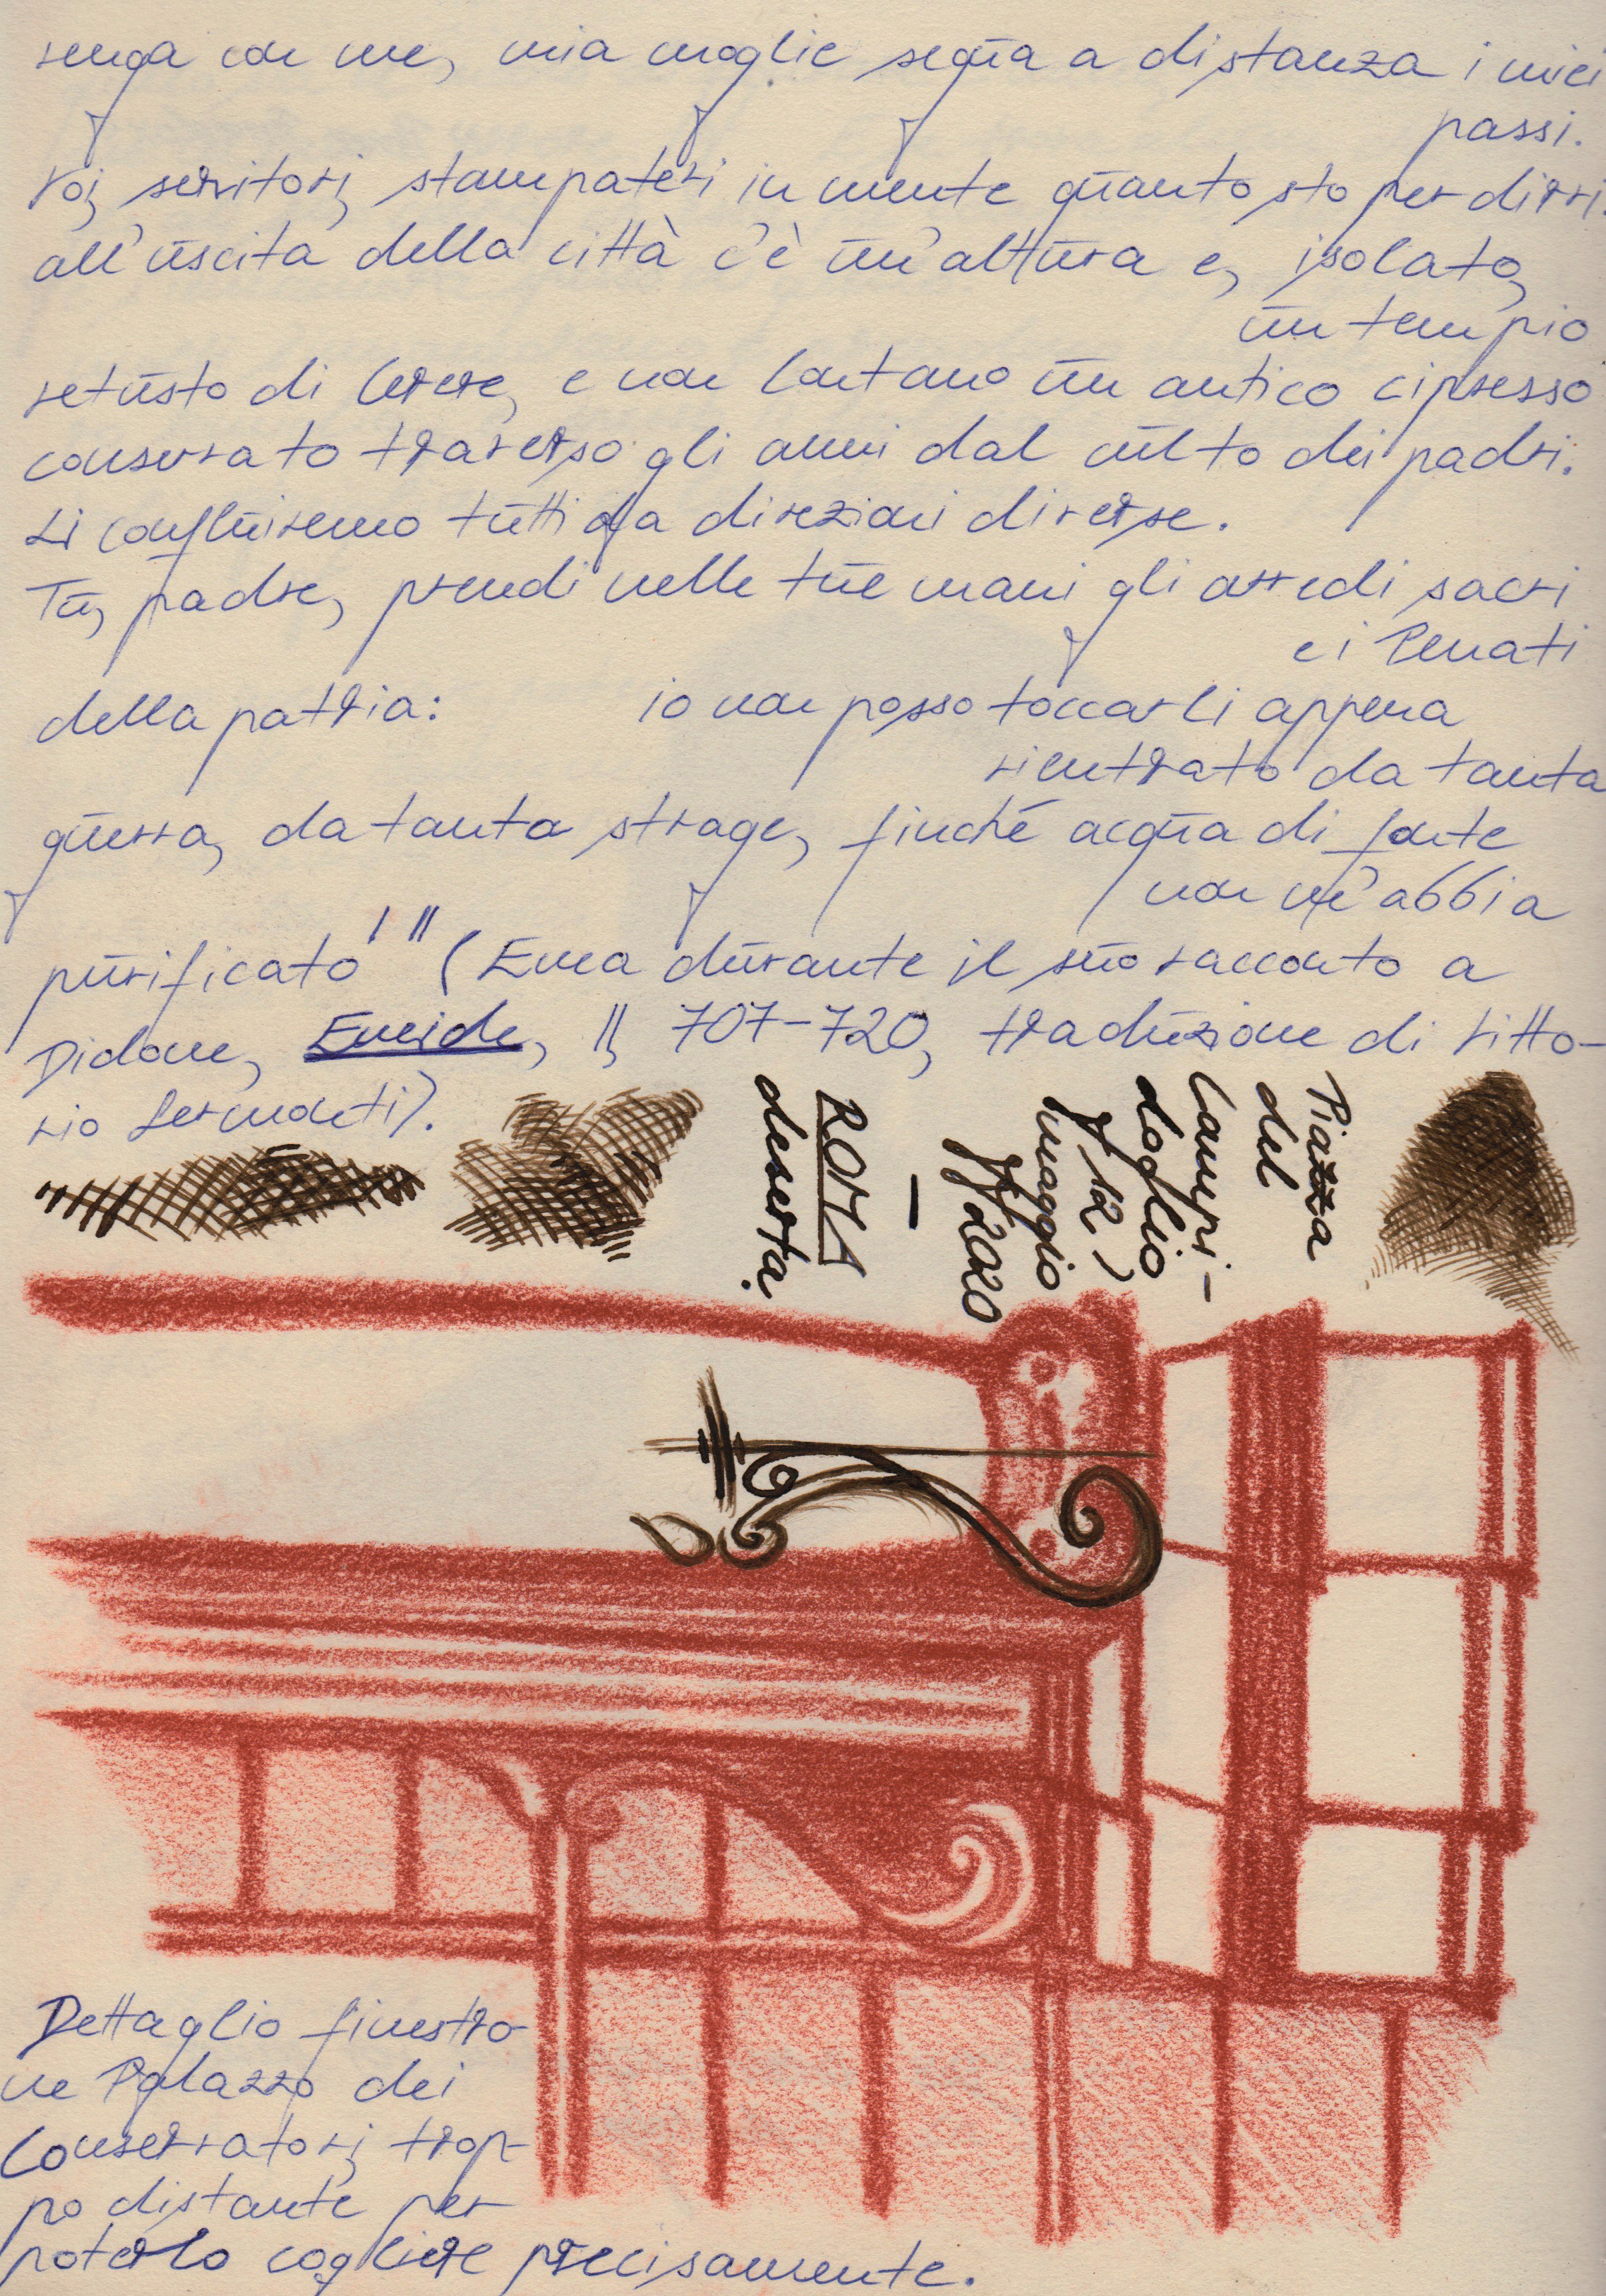 venga con me, mia moglie segua a distanza i miei
passi.
Voi, servitori, stampatevi in mente quanto sto per dirvi:
all'uscita della città c'è un'altura e, isolato,
un tempio
vetusto di Cerere, e non lontano un antico cipresso
conservato traverso gli anni dal culto dei padri.
Lì confluiremo tutti da direzioni diverse.
Tu, padre, prendi nelle tue mani gli arredi sacri
e i Penati
della patria: io non posso toccarli appena
rientrato da tanta
guerra, da tanta strage, finché acqua di fonte
non m'abbia
purificato'" (Enea durante il suo racconto a
Didone, Eneide, II, 707-720, traduzione di Vitto-
rio Sermonti).
Piazza
del
Campi-
doglio
(12)
maggio
2020
—
ROMA
deserta.
Dettaglio finestro-
ne Palazzo dei
Conservatori, trop-
po distante per
poterlo cogliere precisamente.